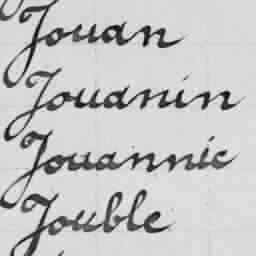 Jouan
Jouanin
Jouannic
Jouble